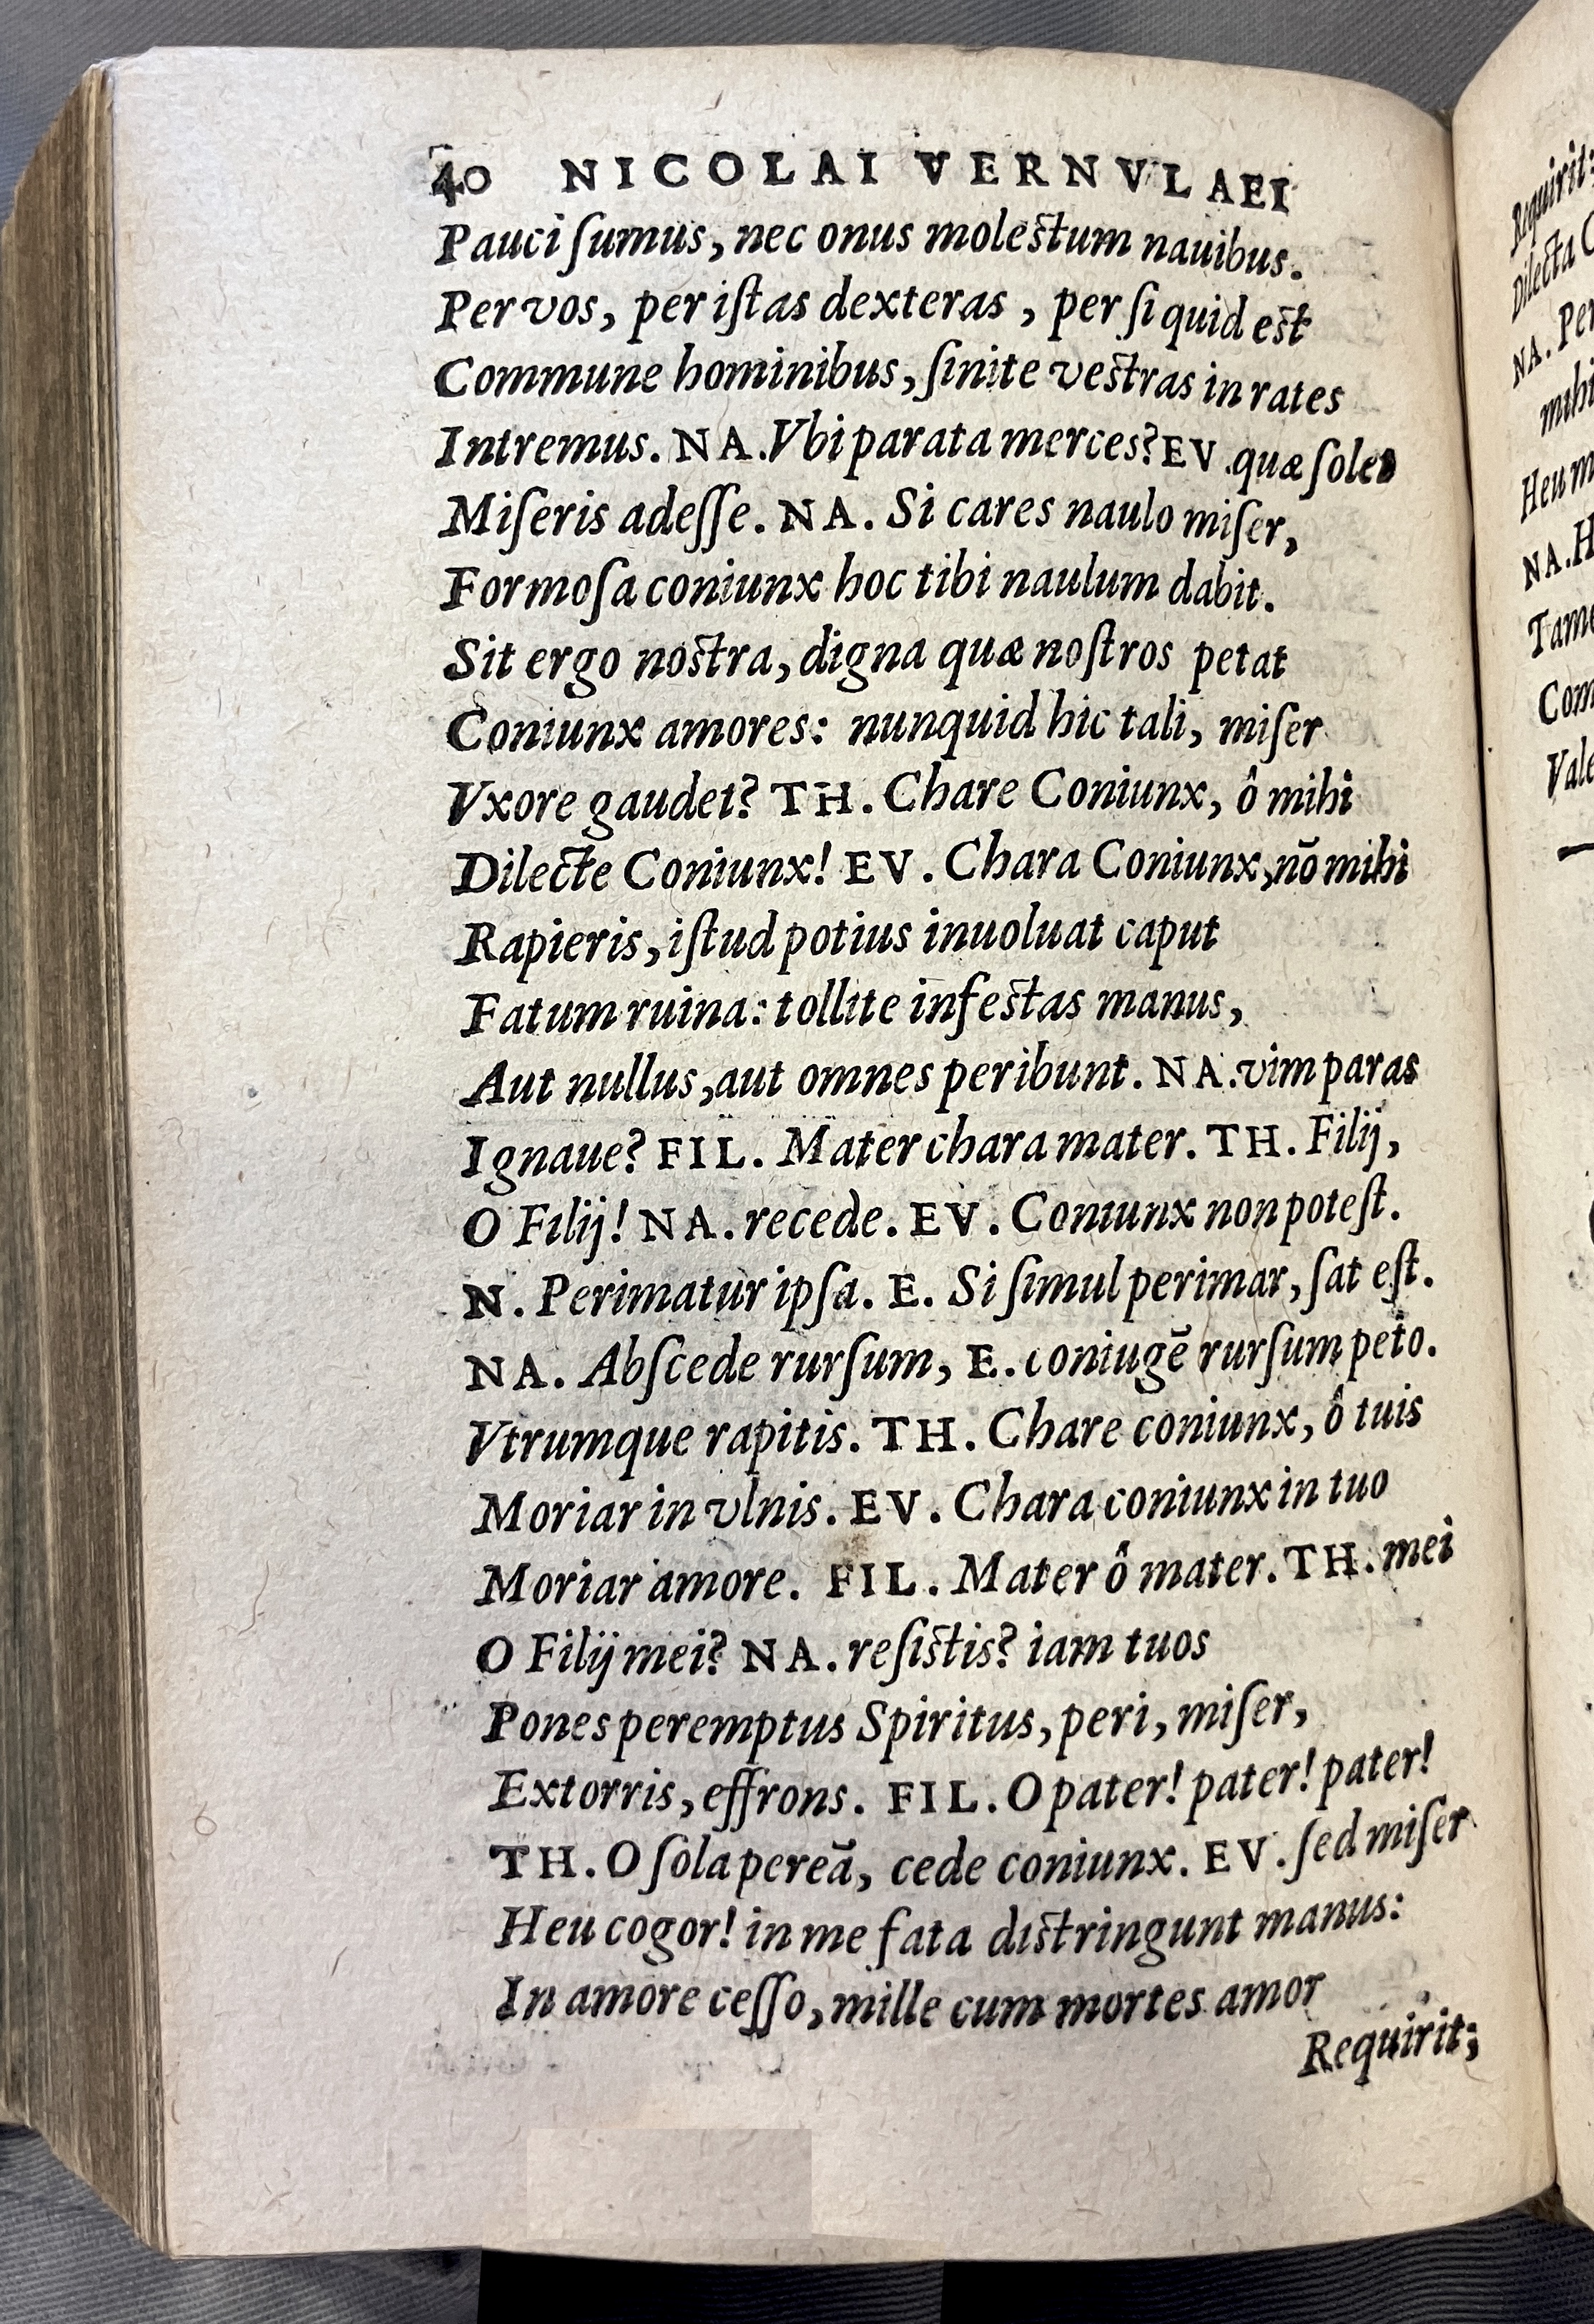 40 NICOLAI VERNVLAEI
Pauci ſumus, nec onus moleſtum nauibus.
Per vos, per iſtas dexteras, per ſi quid eſt
Commune hominibus, ſinite veſtras in rates
Intremus. NA. Vbi parata merces? EV. quæ ſolet
Miſeris adeſſe. NA. Si cares naulo miſer,
Formoſa coniunx hoc tibi naulum dabit.
Sit ergo noſtra, digna quæ noſtros petat
Coniunx amores: nunquid hic tali, miſer
Vxore gaudet? TH. Chare Coniunx, ô mihi
Dilecte Coniunx! EV. Chara Coniunx, nõ mihi
Rapieris, iſtud potius inuoluat caput
Fatum ruina: tollite infeſtas manus,
Aut nullus, aut omnes peribunt. NA. vim paras
Ignaue? FIL. Mater chara mater. TH. Filij,
O Filij! NA. recede. EV. Coniunx non poteſt.
N. Perimatur ipſa. E. Si ſimul perimar, ſat eſt.
NA. Abſcede rurſum, E. coniugẽ rurſum peto.
Vtrumque rapitis. TH. Chare coniunx, ô tuis
Moriar in vlnis. EV. Chara coniunx in tuo
Moriar amore. FIL. Mater ô mater. TH. mei
O Filij mei? NA. reſiſtis? iam tuos
Pones peremptus Spiritus, peri, miſer,
Extorris, effrons. FIL. O pater! pater! pater!
TH. O ſola pereã, cede coniunx. EV. ſed miſer
Heu cogor! in me fata diſtringunt manus:
In amore ceſſo, mille cum mortes amor
Requirit;
Requirit;
Dilecta
NA. Per
mihi
Heu
NA.
Vale